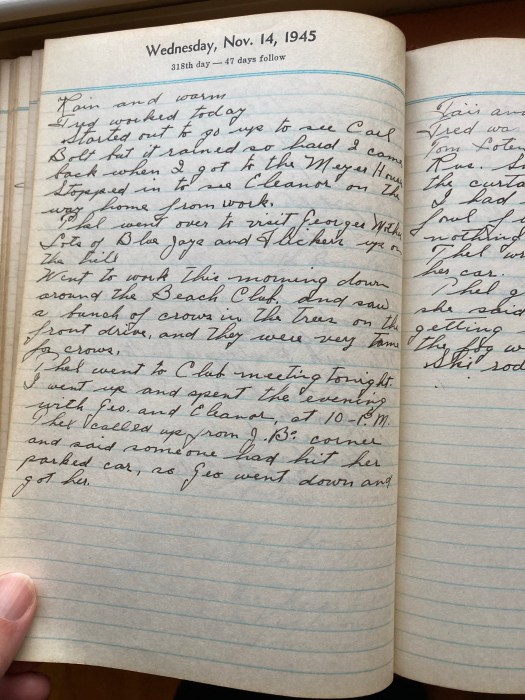 Wednesday, Nov. 14, 1945
318th day — 47 days follow
Rain and warm
Fred worked today
Started out to go up to see Carl
Bolt but it rained so hard I came
back when I got to the Meyer House
Stopped in to see Eleanor on the
way home from work.
Thel went over to visit Georges
Lots of Blue Jays and Flickers up on
the hill
Went to work this morning down
around the Beach Club, and saw
a bunch of crows in the trees on the
front drive, and they were very tame
for crows.
Thel went to Club meeting tonight.
I went up and spent the evening
with Geo. and Eleanor, at 10-P.M.
Thel called up from J.B's corner
and said someone had hit her
parked car, so Geo went down and
got her.
Fair an
Fred wo
Tom
the curta
I had
fowl f
nothing
Thel w
her car.
Thel g
she said
getting
the fog w
rod